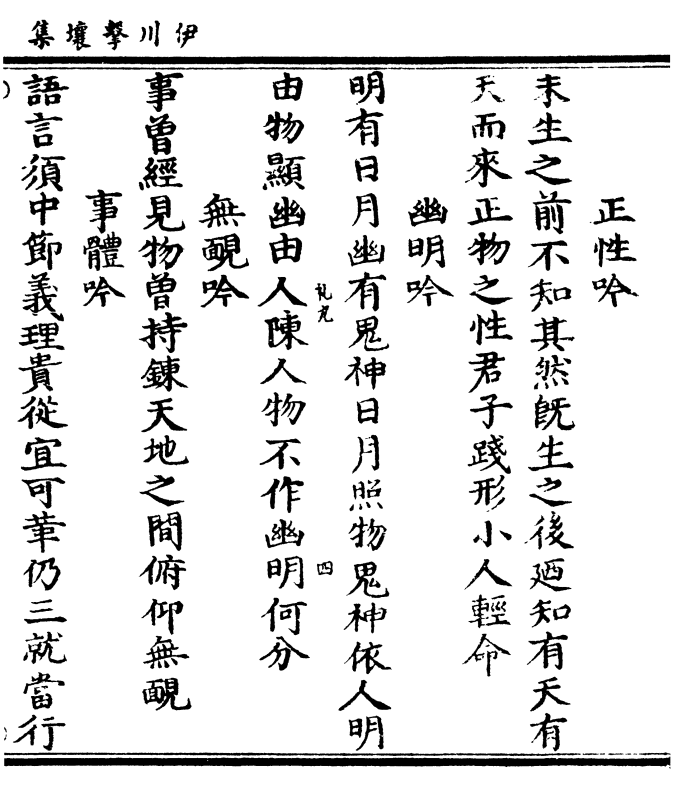 集壤擊川伊
正性吟
未生之前不知其然旣生之後廼知有天有
天而來正物之性君子踐形小人輕命
幽明吟
明有日月幽有鬼神日月照物鬼神依人明
由物顯幽由人陳人物不作幽明何分
四
無靦吟
事曾經見物曾持鍊天地之間俯仰無靦
事體吟
語言須中節義理貴從宜可革仍三就當行